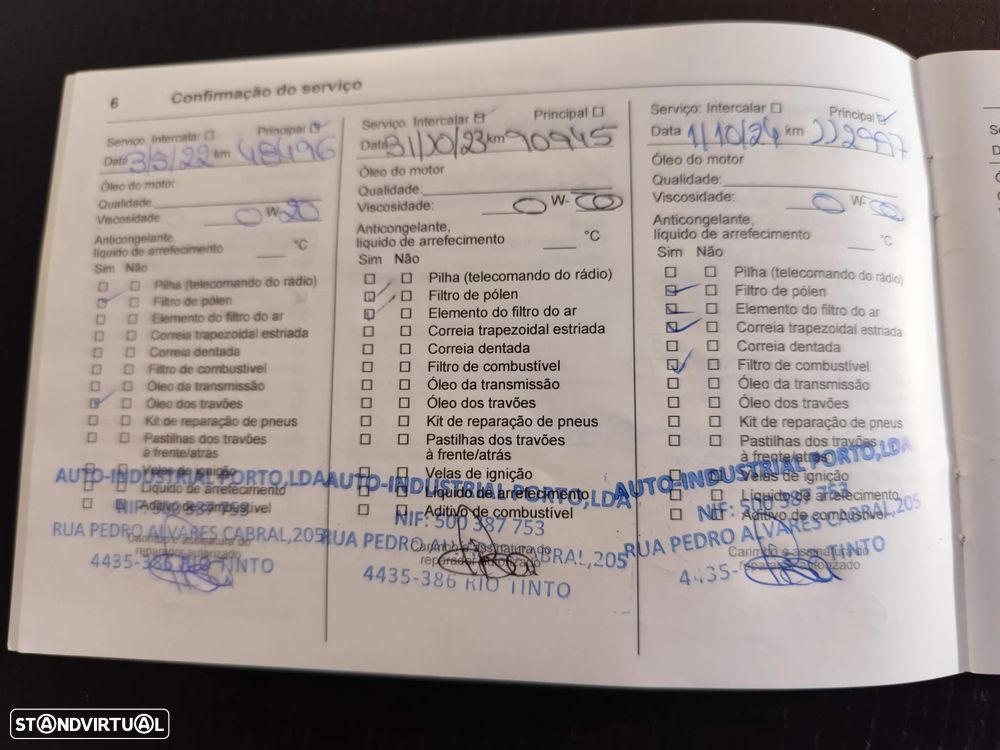 6 Confirmação do serviço
Serviço: Intercalar Principal
Data 3/5/22 km 48496
Óleo do motor
Qualidade:
Viscosidade: 0 W-20
Anticongelante,
líquido de arrefecimento °C
Sim Não
Pilha (telecomando do rádio)
Filtro de pólen
Elemento do filtro do ar
Correia trapezoidal estriada
Correia dentada
Filtro de combustível
Óleo da transmissão
Óleo dos travões
Kit de reparação de pneus
Pastilhas dos travões
à frente/atrás
Velas de ignição
Líquido de arrefecimento
Aditivo de combustível
AUTO-INDUSTRIAL PORTO,LDA
RUA PEDRO ALVARES CABRAL,205
Carimbo e assinatura do
reparador autorizado
4435-386 RIO TINTO
Serviço: Intercalar Principal
Data 31/10/23 km 90945
Óleo do motor
Qualidade:
Viscosidade: 0 W-
Anticongelante,
líquido de arrefecimento °C
Sim Não
Pilha (telecomando do rádio)
Filtro de pólen
Elemento do filtro do ar
Correia trapezoidal estriada
Correia dentada
Filtro de combustível
Óleo da transmissão
Óleo dos travões
Kit de reparação de pneus
Pastilhas dos travões
à frente/atrás
Velas de ignição
Líquido de arrefecimento
Aditivo de combustível
AUTO-INDUSTRIAL PORTO,LDA
NIF: 500 387 753
RUA PEDRO ALVARES CABRAL,205
Carimbo e assinatura do
reparador autorizado
4435-386 RIO TINTO
Serviço: Intercalar Principal
Data 1/10/24 km 112997
Óleo do motor
Qualidade:
Viscosidade: 0 W-
Anticongelante,
líquido de arrefecimento °C
Sim Não
Pilha (telecomando do rádio)
Filtro de pólen
Elemento do filtro do ar
Correia trapezoidal estriada
Correia dentada
Filtro de combustível
Óleo da transmissão
Óleo dos travões
Kit de reparação de pneus
Pastilhas dos travões
à frente/atrás
Velas de ignição
Líquido de arrefecimento
Aditivo de combustível
AUTO-INDUSTRIAL PORTO,LDA
NIF: 500 387 753
RUA PEDRO ALVARES CABRAL,205
Carimbo e assinatura do
reparador autorizado
4435- TINTO
STANDVIRTUAL